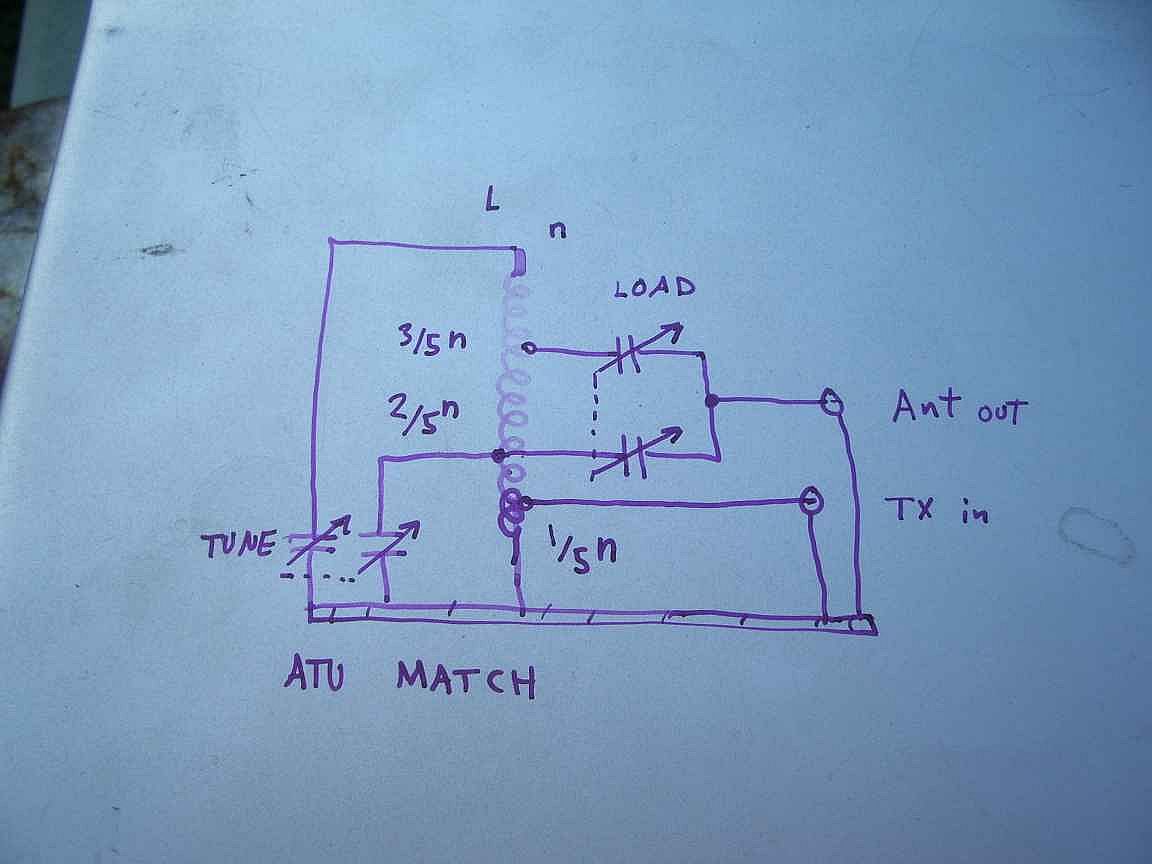 L
n
LOAD
3/5n
2/5n
Ant out
TX in
TUNE
1/5n
ATU MATCH